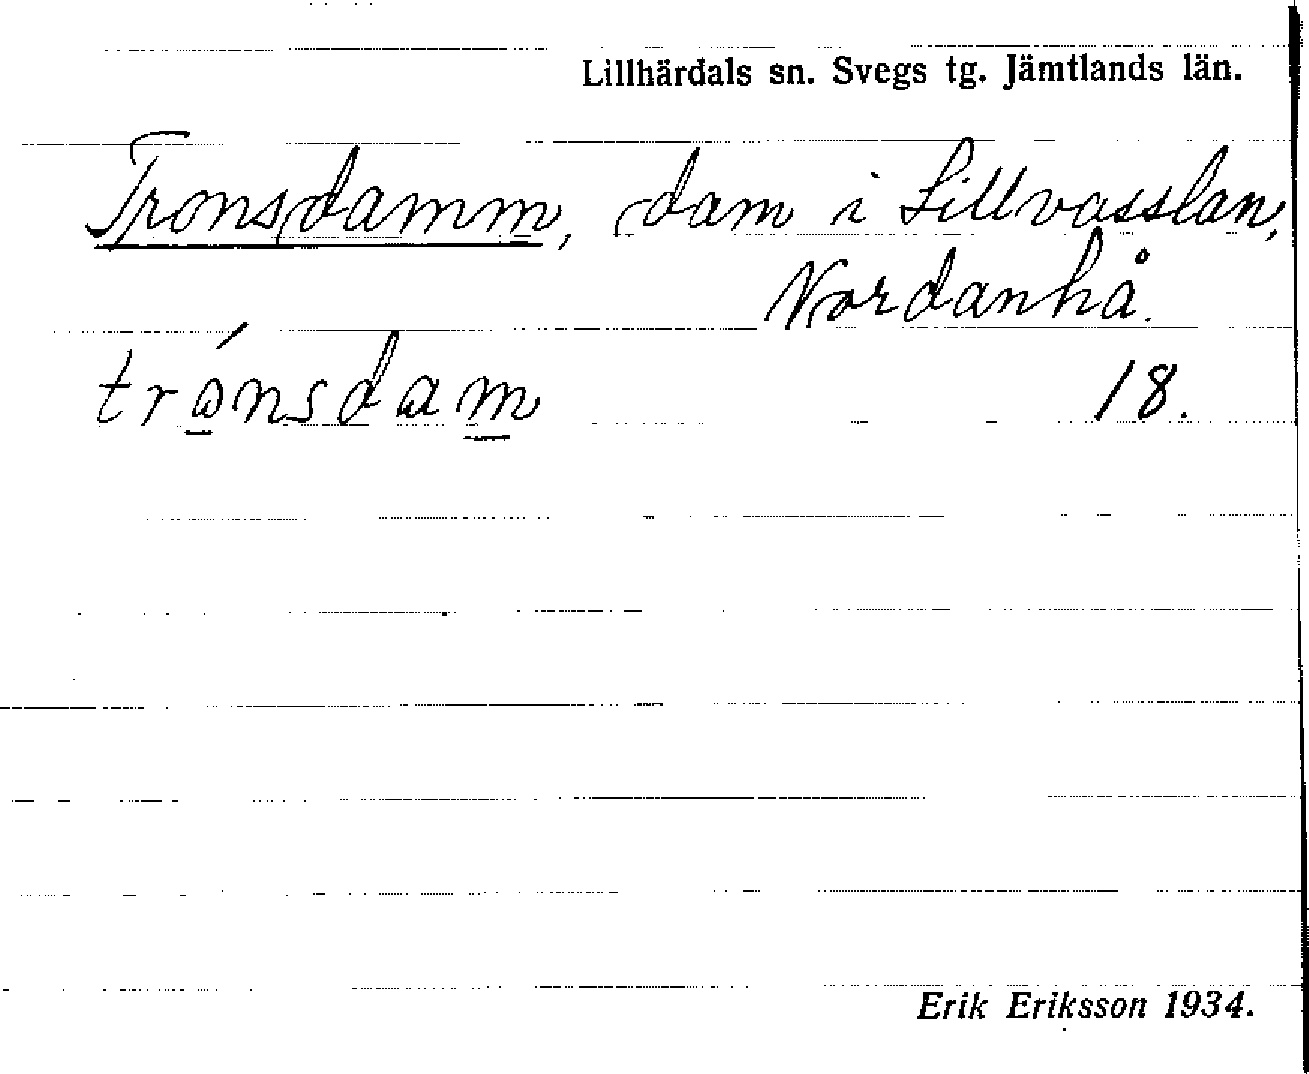 Lillhärdals sn. Svegs tg. Jämtlands län.
Tronsdamm, dam i Lillvasslan,
Nordanhå.
trónsdam 18.
Erik Eriksson 1934.